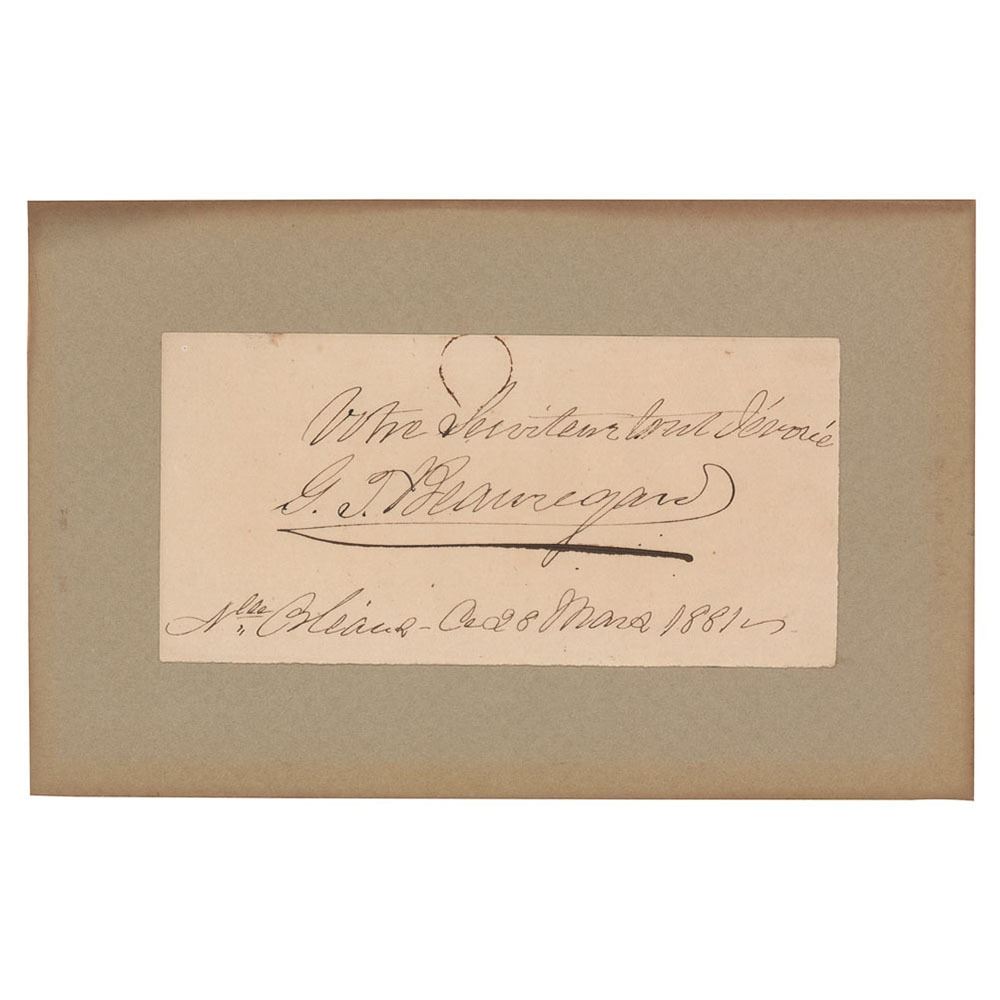 Votre Serviteur tout dévoué
G. T. Beauregard
Nlle Orléans - Ce 28 Mars 1881